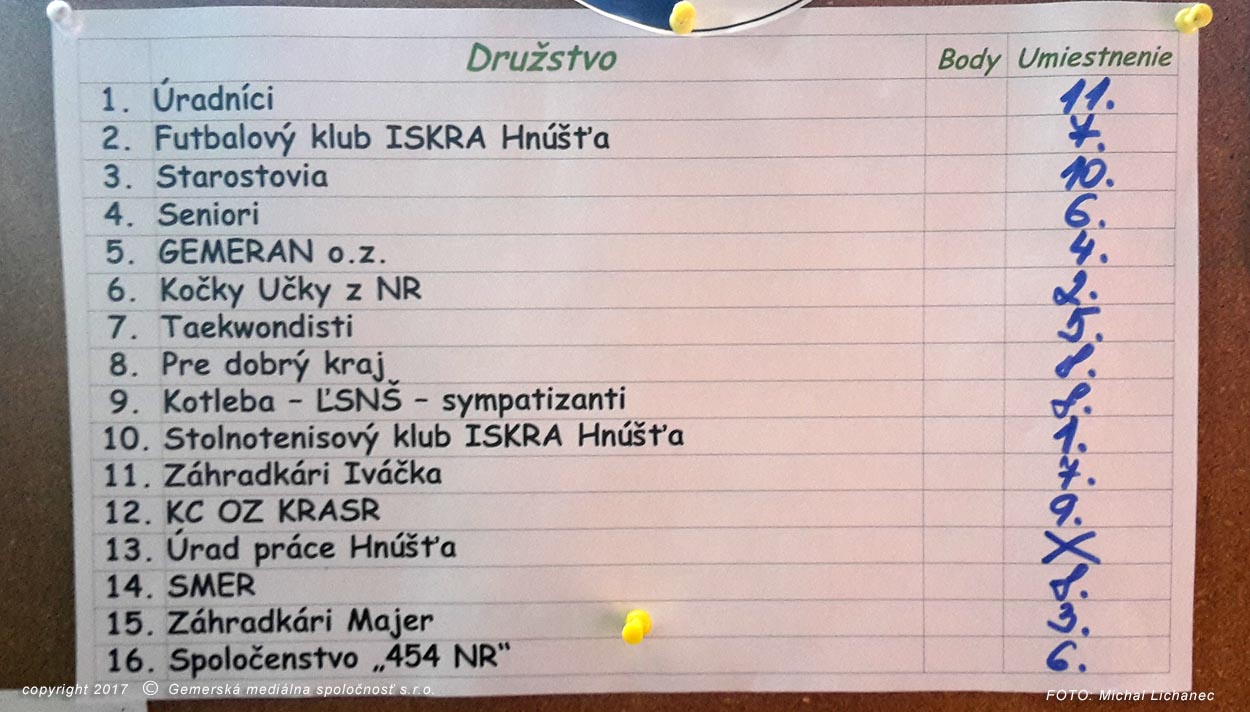 Družstvo Body Umiestnenie
1. Úradníci 11.
2. Futbalový klub ISKRA Hnúšťa 7.
3. Starostovia 10.
4. Seniori 6.
5. GEMERAN o.z. 4.
6. Kočky Učky z NR 2.
7. Taekwondisti 5.
8. Pre dobrý kraj 8.
9. Kotleba - ĽSNŠ - sympatizanti 8.
10. Stolnotenisový klub ISKRA Hnúšťa 1.
11. Záhradkári Iváčka 7.
12. KC OZ KRASR 9.
13. Úrad práce Hnúšťa X
14. SMER 8.
15. Záhradkári Majer 3.
16. Spoločenstvo „454 NR“ 6.
copyright 2017 © Gemerská mediálna spoločnosť s.r.o.
FOTO: Michal Lichanec